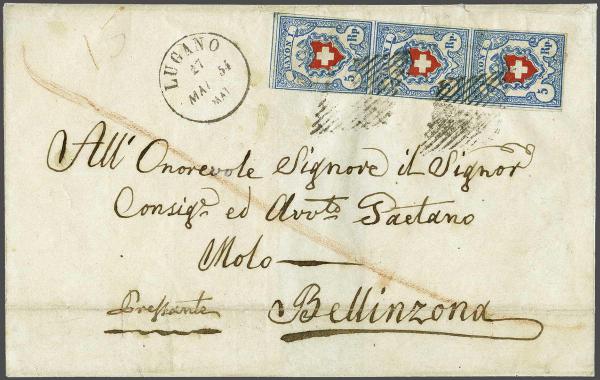 15
LUGANO
27
MAI 54
MAI
RAYON I 5 Rp.
RAYON I 5 Rp.
RAYON I 5 Rp.
All' Onorevole Signore il Signor
Consigᵉ ed Avvto Gaetano
Molo
Pressante Bellinzona